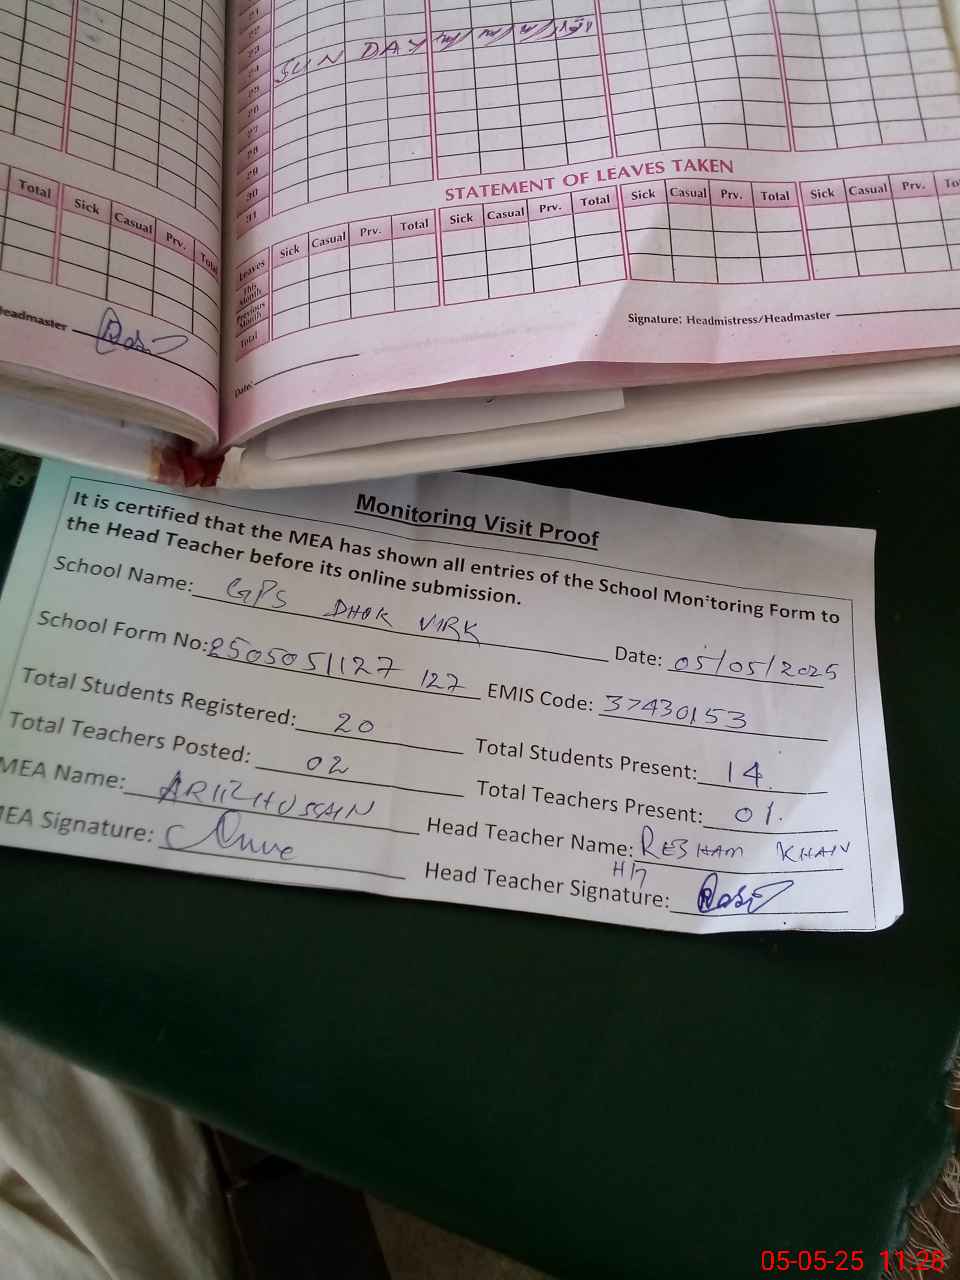 21
22
23
24 SUN DAY
25
26
27
28
29
30
31
STATEMENT OF LEAVES TAKEN
Total Sick Casual Prv. Total
Leaves Sick Casual Prv. Total Sick Casual Prv. Total Sick Casual Prv. Total Sick Casual Prv.
This Month
Previous Month
Total
Headmaster
Signature: Headmistress/Headmaster
Date:
Monitoring Visit Proof
It is certified that the MEA has shown all entries of the School Monitoring Form to
the Head Teacher before its online submission.
School Name: GPS DHOK VIRK
Date: 05/05/2025
School Form No: 2505051127 127
EMIS Code: 37430153
Total Students Registered: 20
Total Students Present: 14
Total Teachers Posted: 02
Total Teachers Present: 01.
MEA Name: HUSSAIN
Head Teacher Name: RESHAM KHAN
MEA Signature:
Head Teacher Signature:
05-05-25 11:28